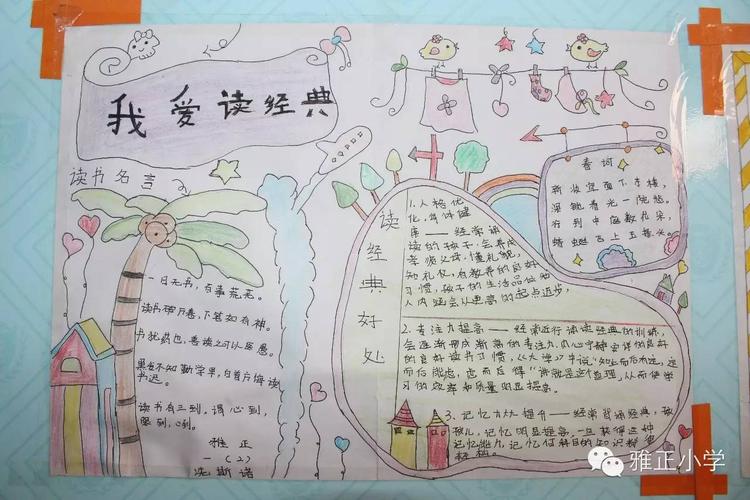 我爱读经典
读书名言
一日无书,百事荒芜。
读书破万卷,下笔如有神。
书犹药也,善读之可以医愚。
黑发不知勤学早,白首方悔读
书迟。
读书有三到,谓心到,
眼到,口到。
雅正
一(2)
冼斯诺
读经典好处
1.人格优
化,身体健
康——经常诵
读的孩子,会养成
孝顺父母,懂礼貌,
知礼仪,有教养的良好
习惯,孩子的生活品位和
人内涵会从更高的起点进步,
2.专注力提高——经常进行诵读经典的训练,
会逐渐形成渐高的专注力,内心宁静安详的良好
的良好读书习惯,《大学》中说"知止而后有定,定
而后能虑,虑而后得"讲就是这个道理,从而使学
习的效率和质量明显提高。
3、记忆力大提升——经常背诵经典,孩
子儿,记忆明显提高,一旦获得这种
记忆能力,记忆何科目的知识都
轻松。
春词
新妆宜面下朱楼,
深锁春光一院愁。
行到中庭数花朵,
蜻蜓飞上玉搔头。
雅正小学